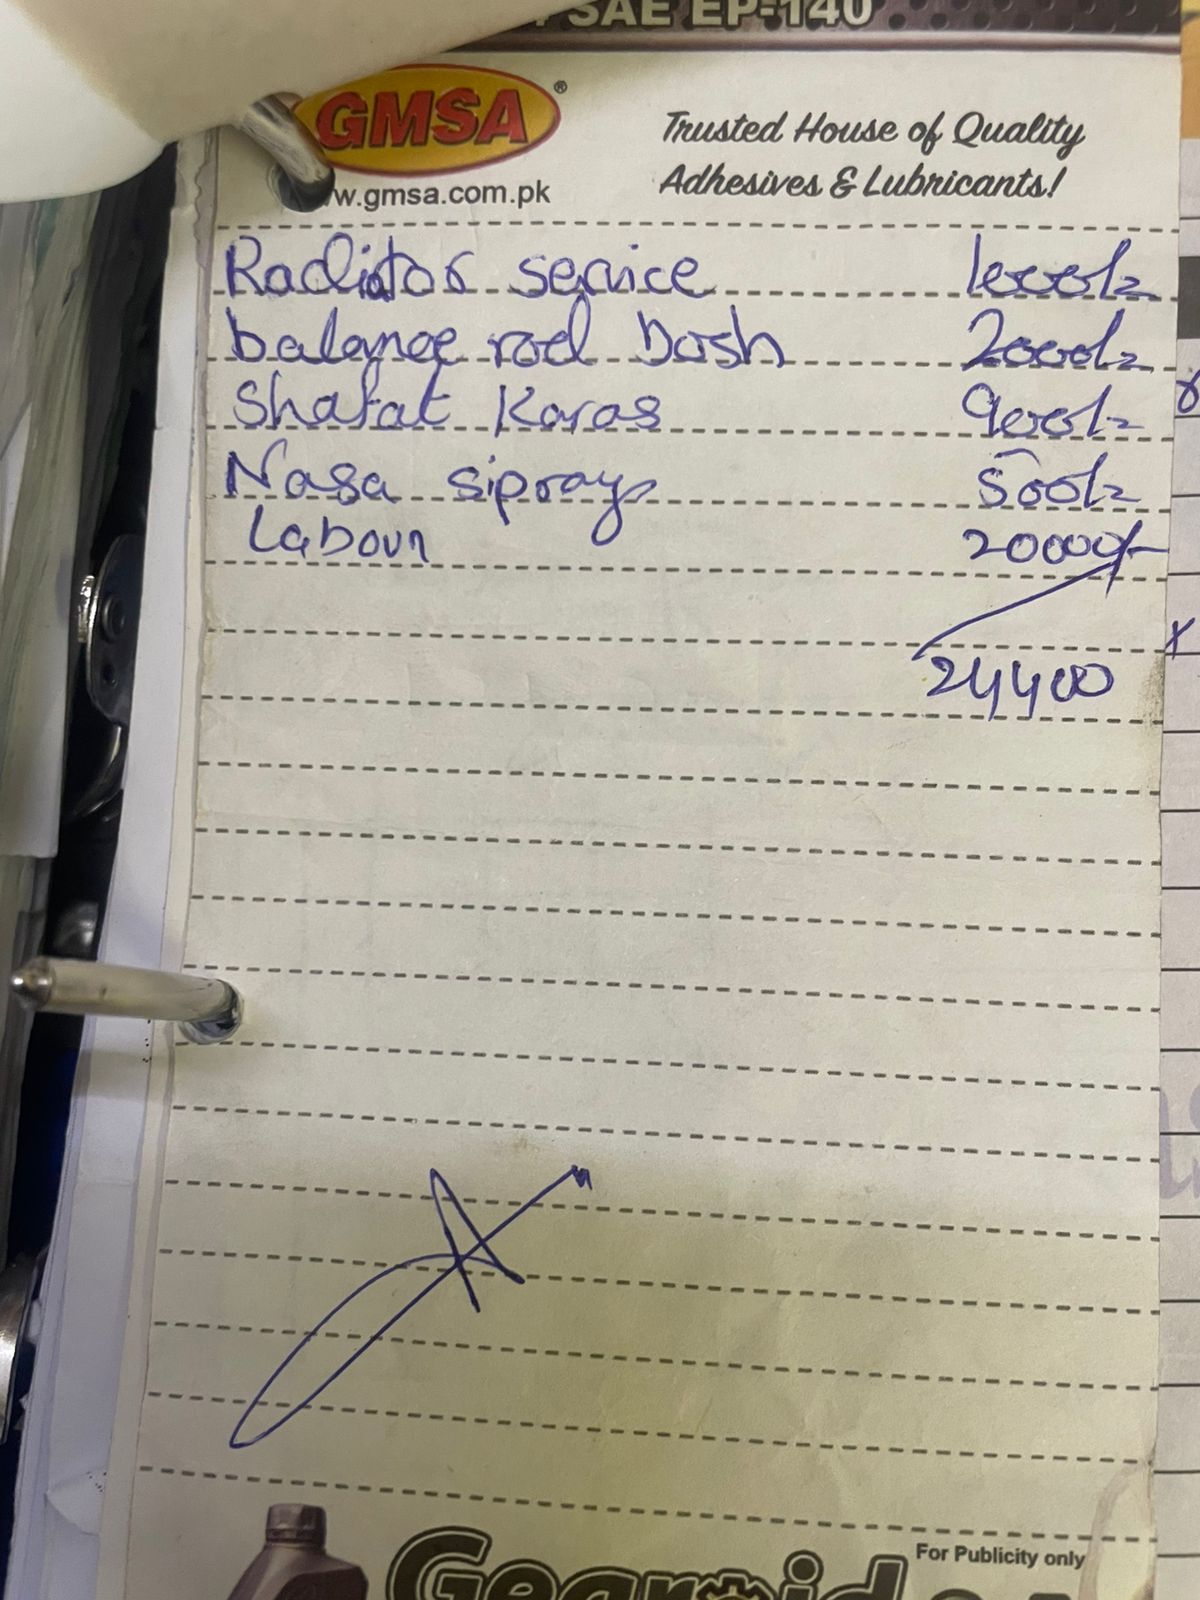 SAE EP-140
GMSA®
Trusted House of Quality
Adhesives & Lubricants!
w.gmsa.com.pk
Radiator service 1000/=
balance rod bosh 2000/=
Shafat Karas 900/=
Nasa siprays 500/=
Labour 20000/-
24400
For Publicity only